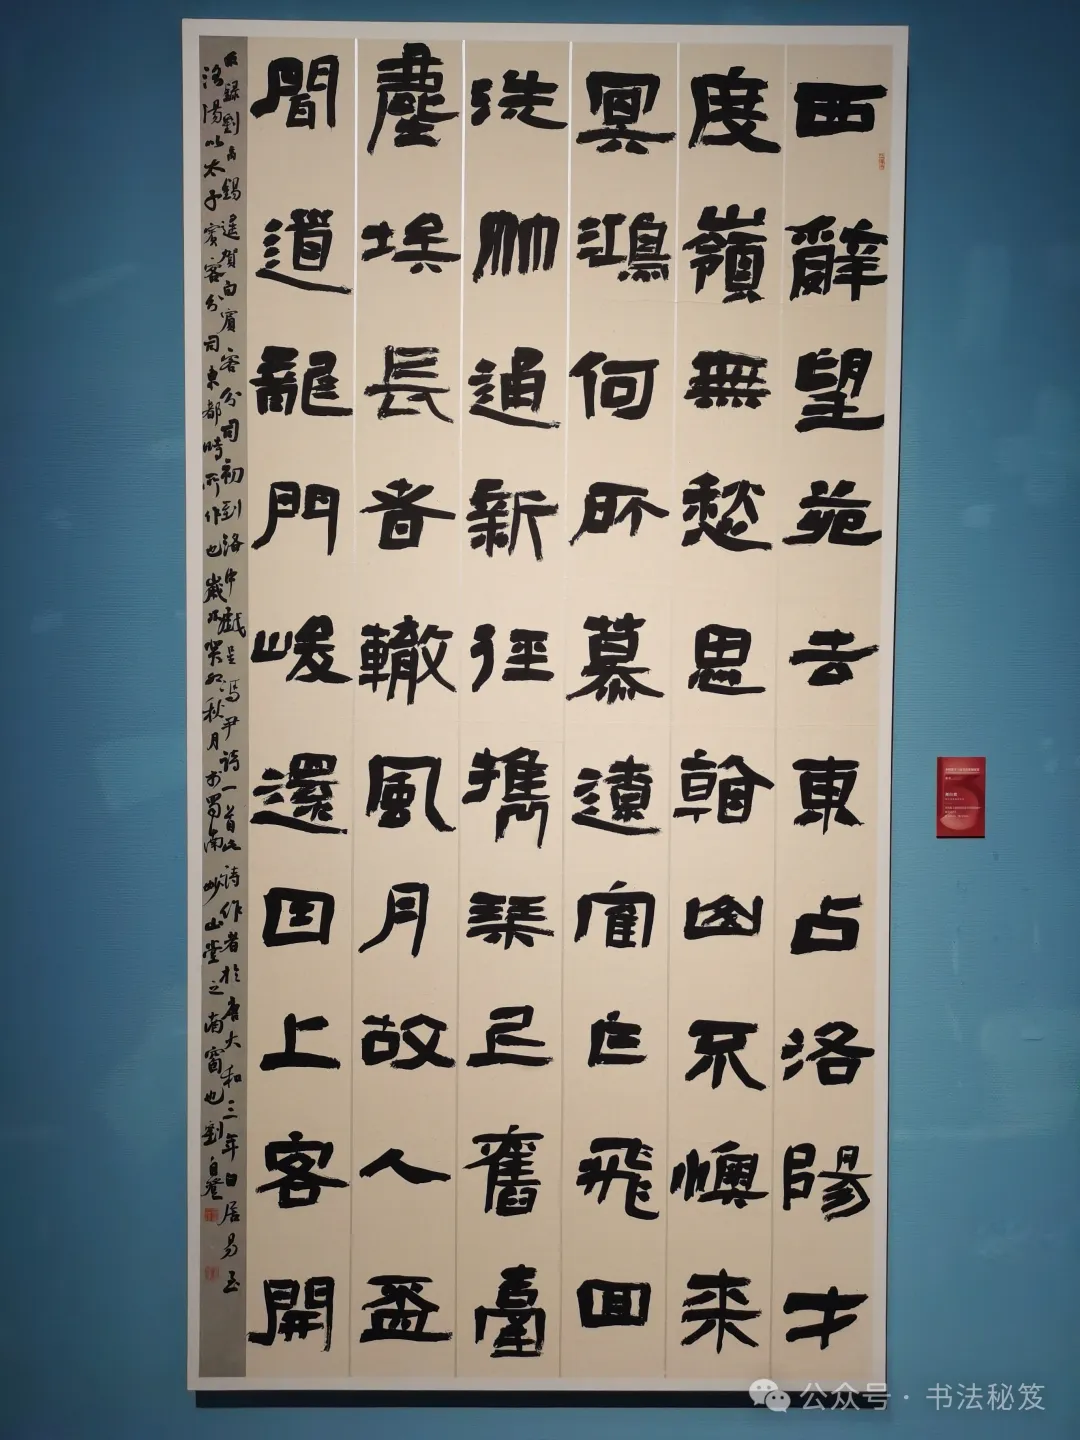 西辭望苑去東占洛陽才
度嶺無愁思看山不懊來
冥鴻何所慕遼寉乍飛回
洗竹通新徑攜琴上舊臺
塵埃長者轍風月故人盃
聞道龍門峻還因上客開
録劉禹錫遙賀白賓客分司初到洛中戲呈馮尹詩一首此詩作者於唐大和三年白居易至
洛陽以太子賓客分司東都時所作也歲次癸卯秋月於蜀南妙山堂之南窗也劉自
公众号·书法秘笈